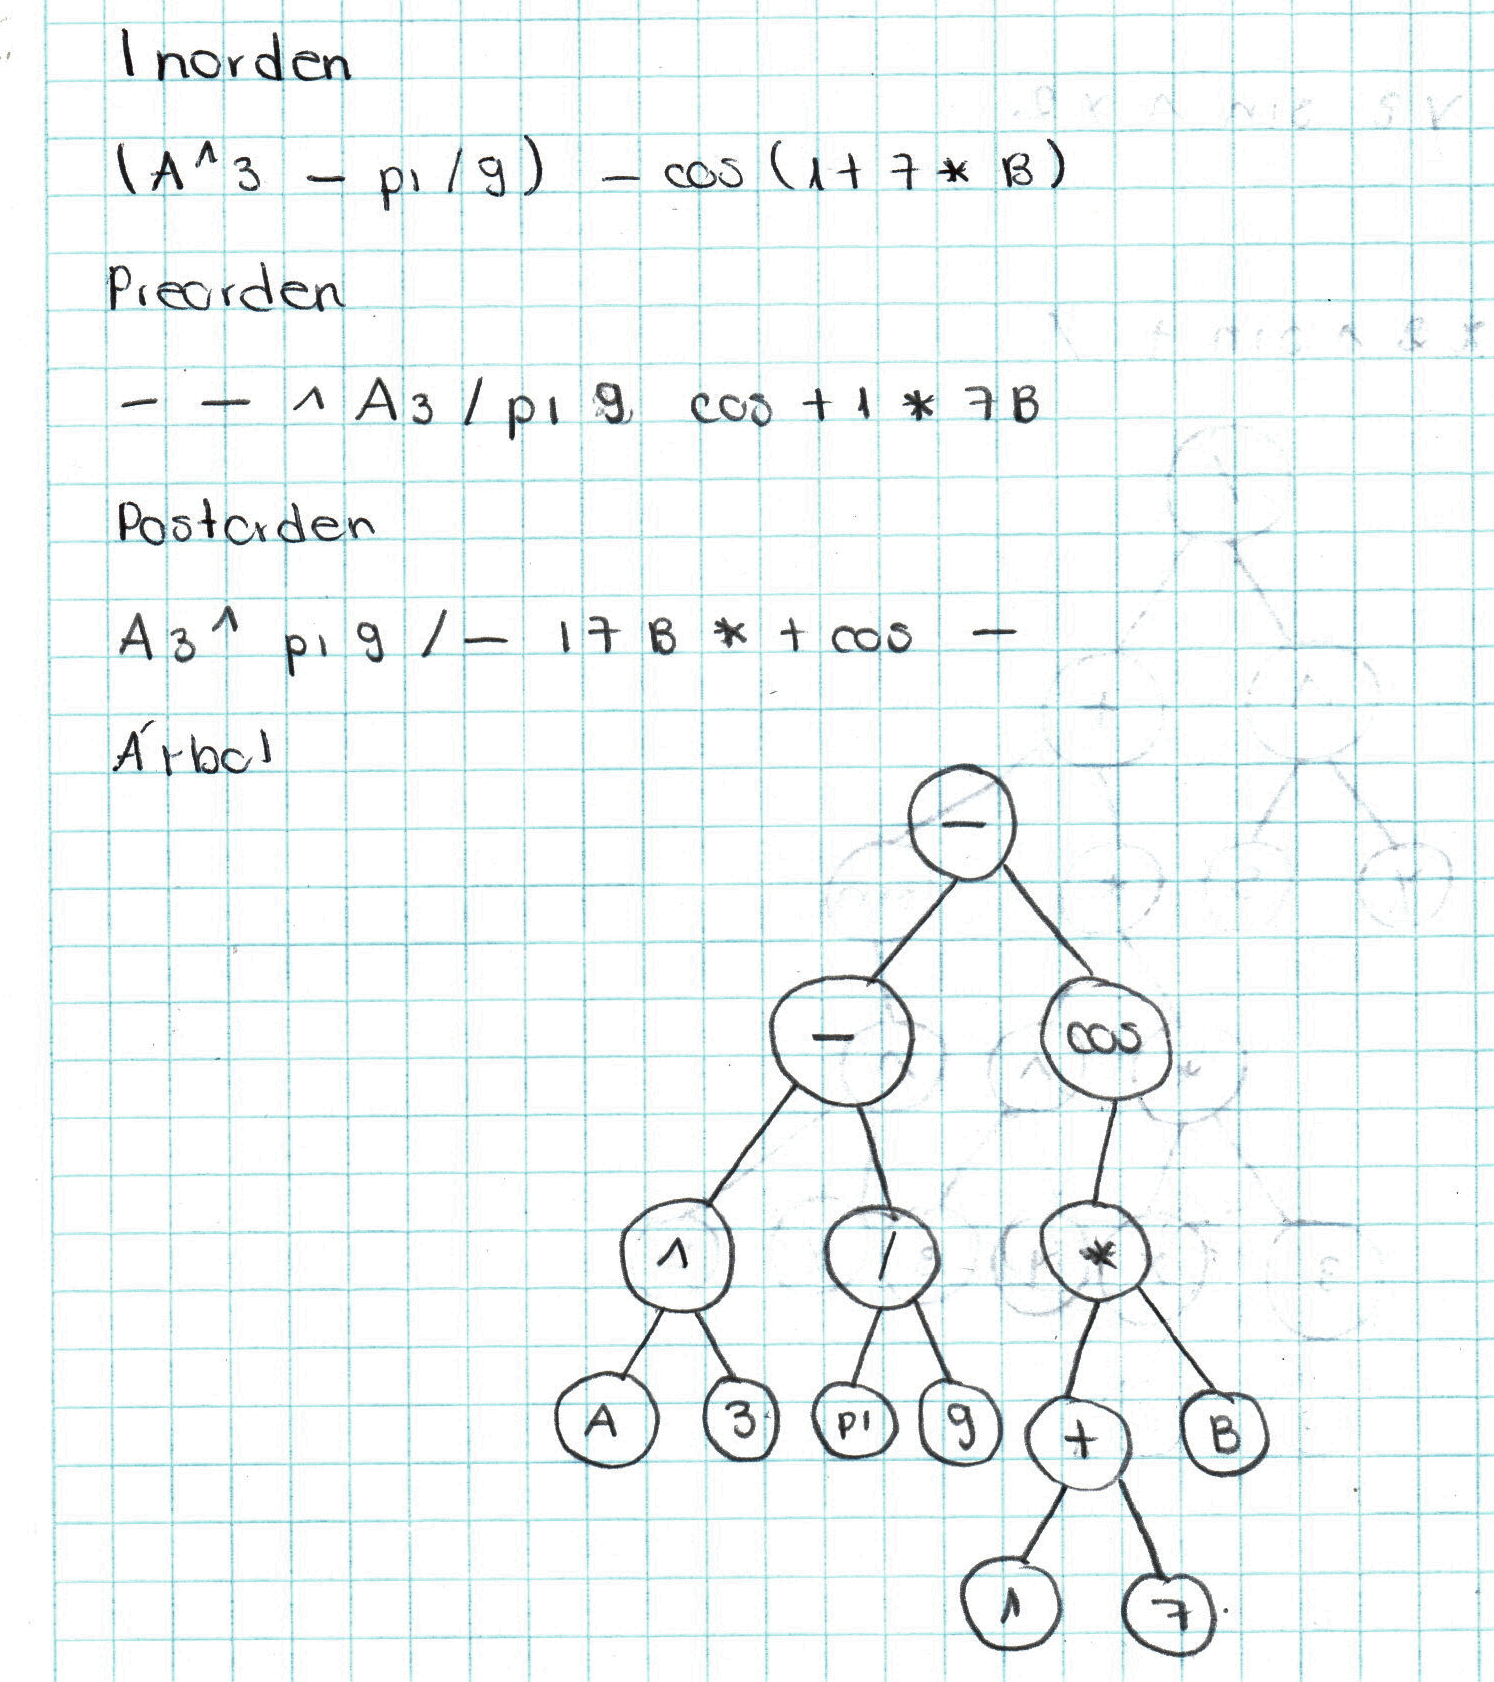 Inorden
(A^3 - pi/9) - cos(1+7*B)
Preorden
- - ^ A3 / pi 9 cos + 1 * 7B
Postorden
A3^ pi 9 / - 17B * + cos -
Árbol
-
- cos
^ / *
A 3 pi 9 + B
1 7